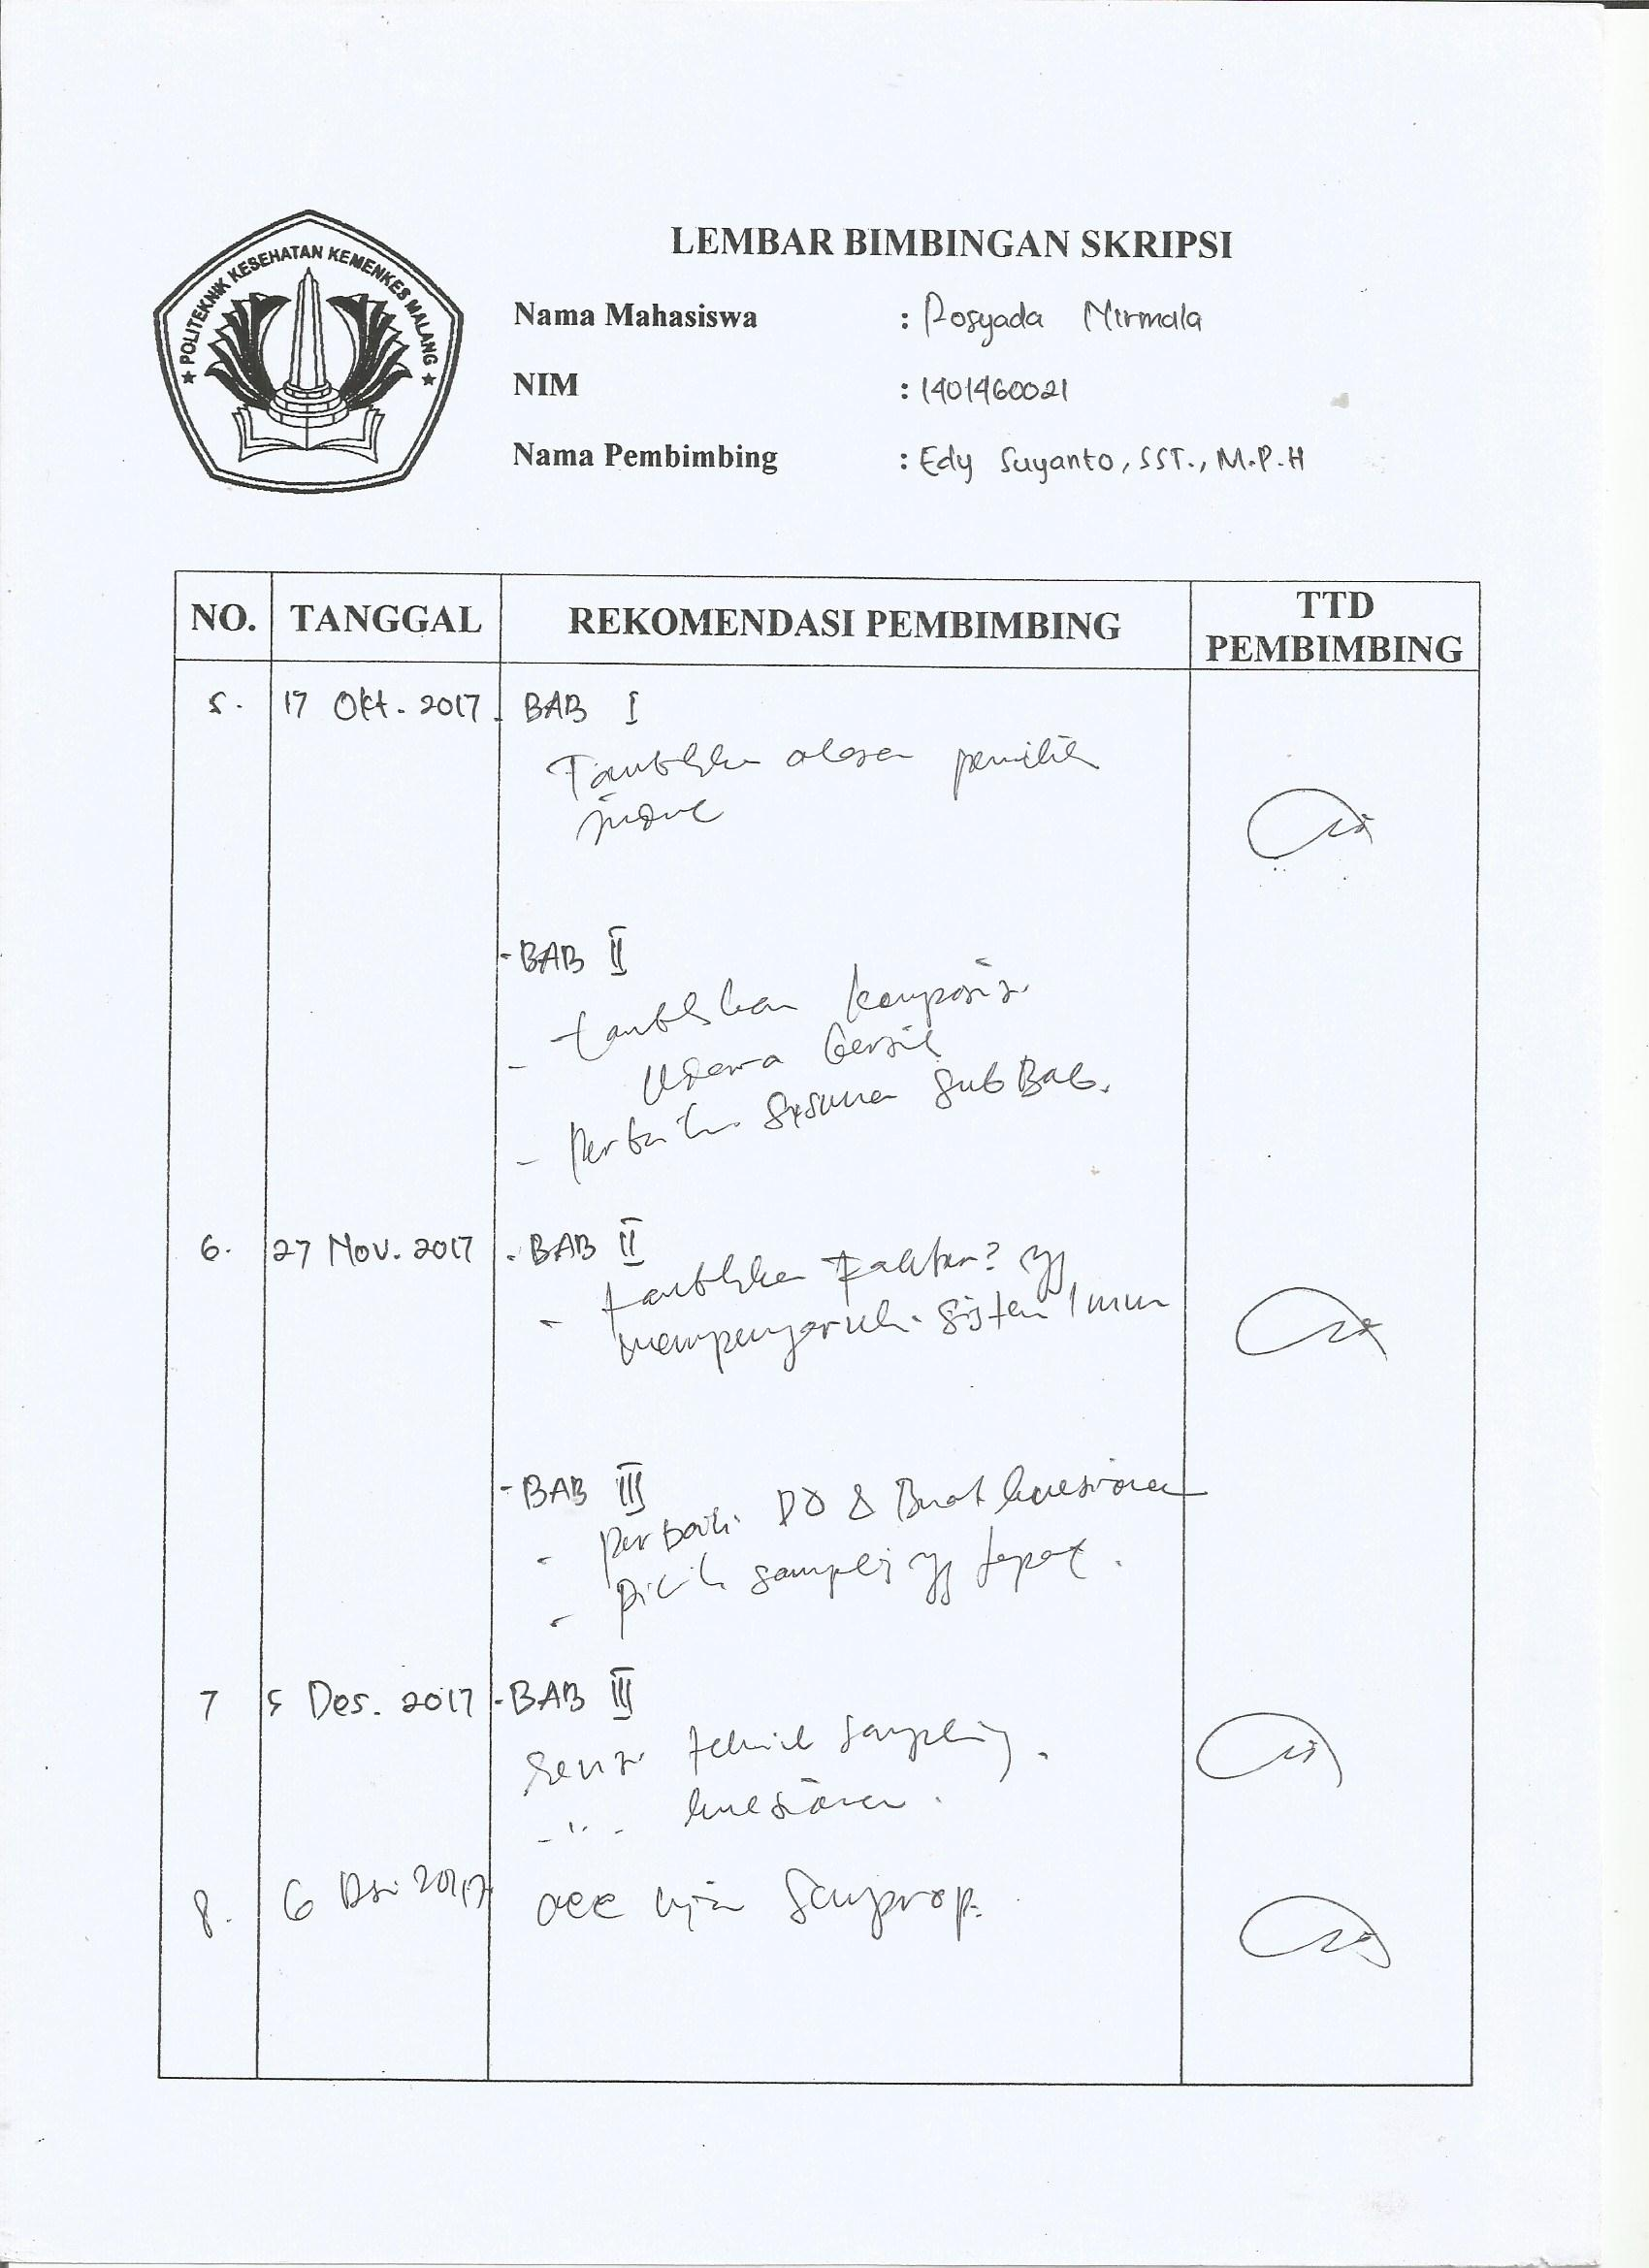 POLITEKNIK KESEHATAN KEMENKES MALANG
LEMBAR BIMBINGAN SKRIPSI
Nama Mahasiswa : Rosyada Nirmala
NIM : 1401460021
Nama Pembimbing : Edy Suyanto, SST., M.P.H
NO. TANGGAL REKOMENDASI PEMBIMBING TTD PEMBIMBING
5. 17 Okt. 2017 . BAB I
Tambahkan alasan pemilih
judul
- BAB II
- tambahkan komposisi
Udara bersih
- Perbaiki susunan Sub Bab.
6. 27 Nov. 2017 . BAB II
- tambahkan Faktor2 yg
mempengaruhi sistem Imun
- BAB III
- Perbaiki DO & Buat kuesioner
- Pilih sampling yg tepat.
7 5 Des. 2017 - BAB III
Revisi teknik sampling.
- " - kuesioner.
8. 6 Des 2017 acc ujian Semprop.